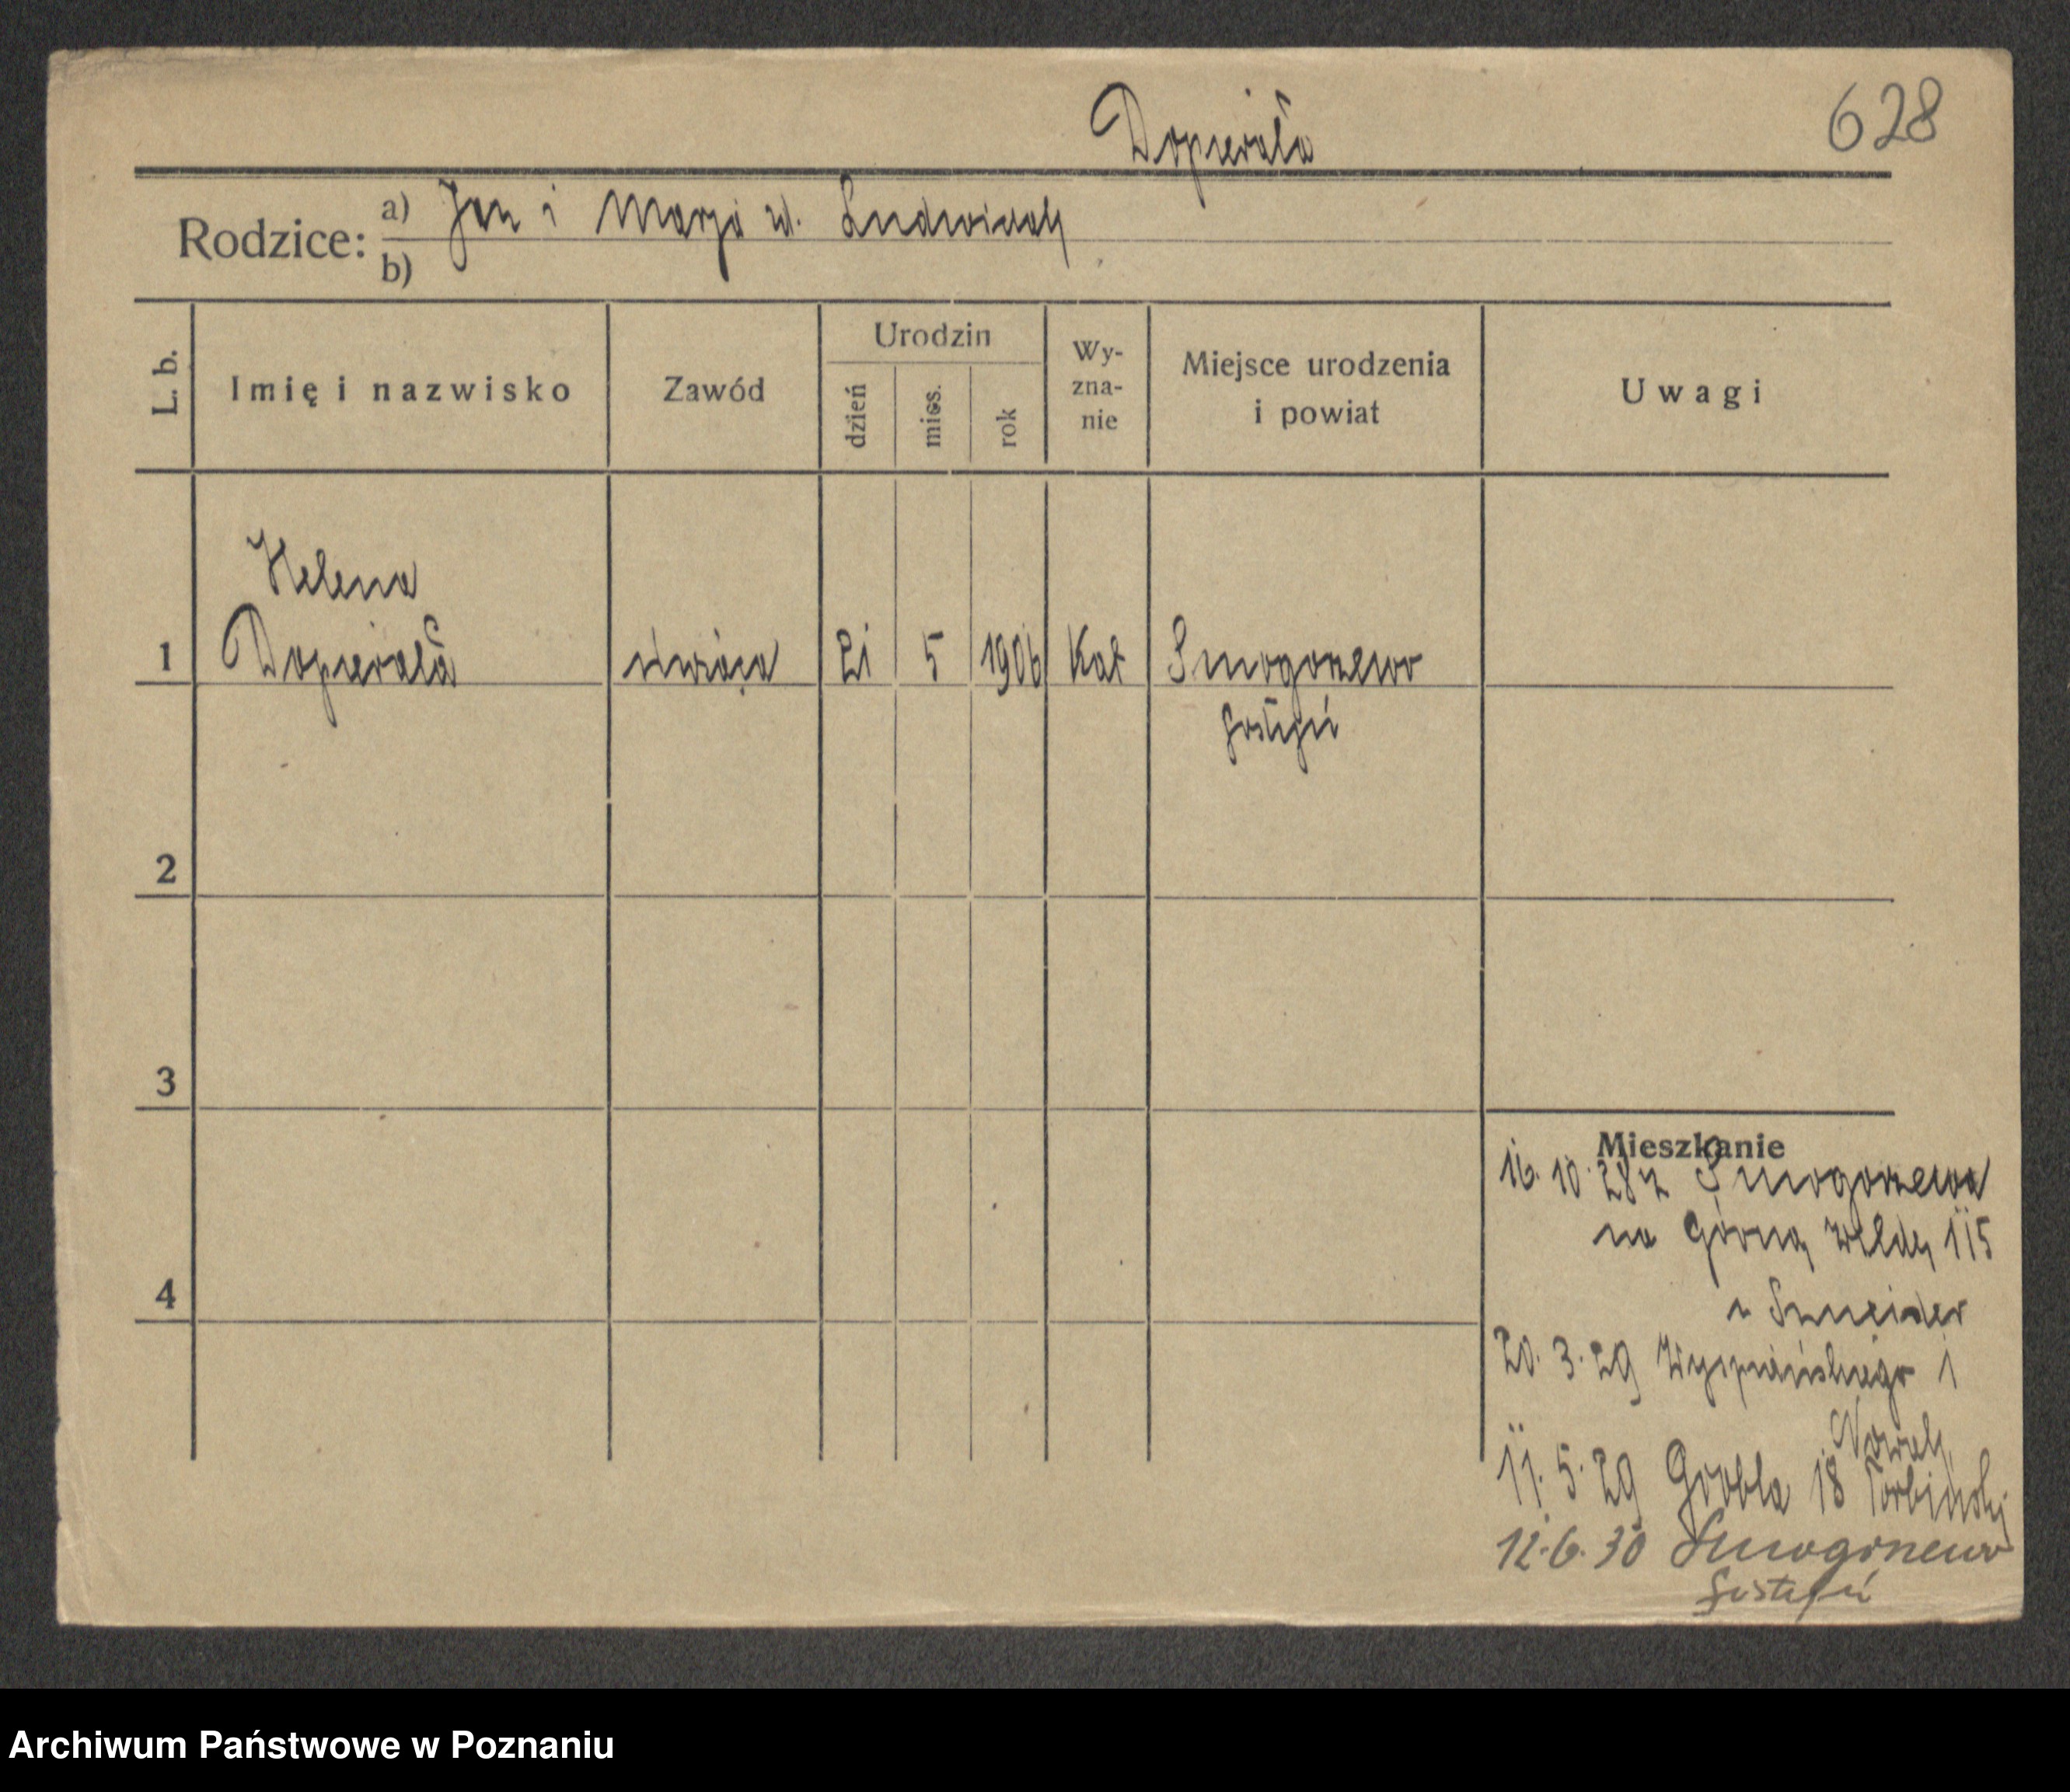 Dopierała
628
Rodzice: a) Jan i Marja z d. Ludwiczak
b)
L. b.
Imię i nazwisko
Zawód
Urodzin
dzień
mies.
rok
Wy-
zna-
nie
Miejsce urodzenia
i powiat
Uwagi
Helena
1 Dopierała służąca 21 5 1906 Kat Smogorzewo
Gostyń
2
3
4
Mieszkanie
16. 10. 28 z Smogorzewa
na Górną Wildę 115
u Szneider
20. 3. 29 Wyspiańskiego 1
Nowak
11. 5. 29 Grobla 18
12. 6. 30 Smogorzewo
Gostyń
Archiwum Państwowe w Poznaniu